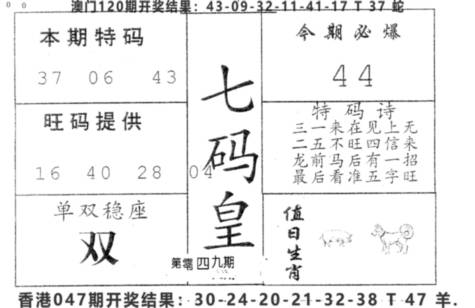 澳门120期开奖结果：43-09-32-11-41-17 T 37 蛇
本期特码
37 06 43
旺码提供
16 40 28 04
单双稳座
双
七码皇
第零四九期
今期必爆
44
特码诗
三一来在见上无
二五不旺四信来
龙前马后有一招
最后看准五字旺
值日生肖
香港047期开奖结果：30-24-20-21-32-38 T 47 羊.